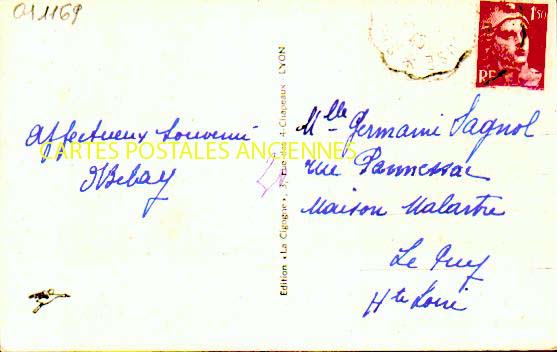 041169
1f50
RF
Affectueux souvenir
CARTES POSTALES ANCIENNES
Edition «La Cigogne», 3, rue des 4-Chapeaux - LYON
Mlle Germaine Sagnol
rue Pannessac
Maison Malartre
Le Puy
Hte Loire